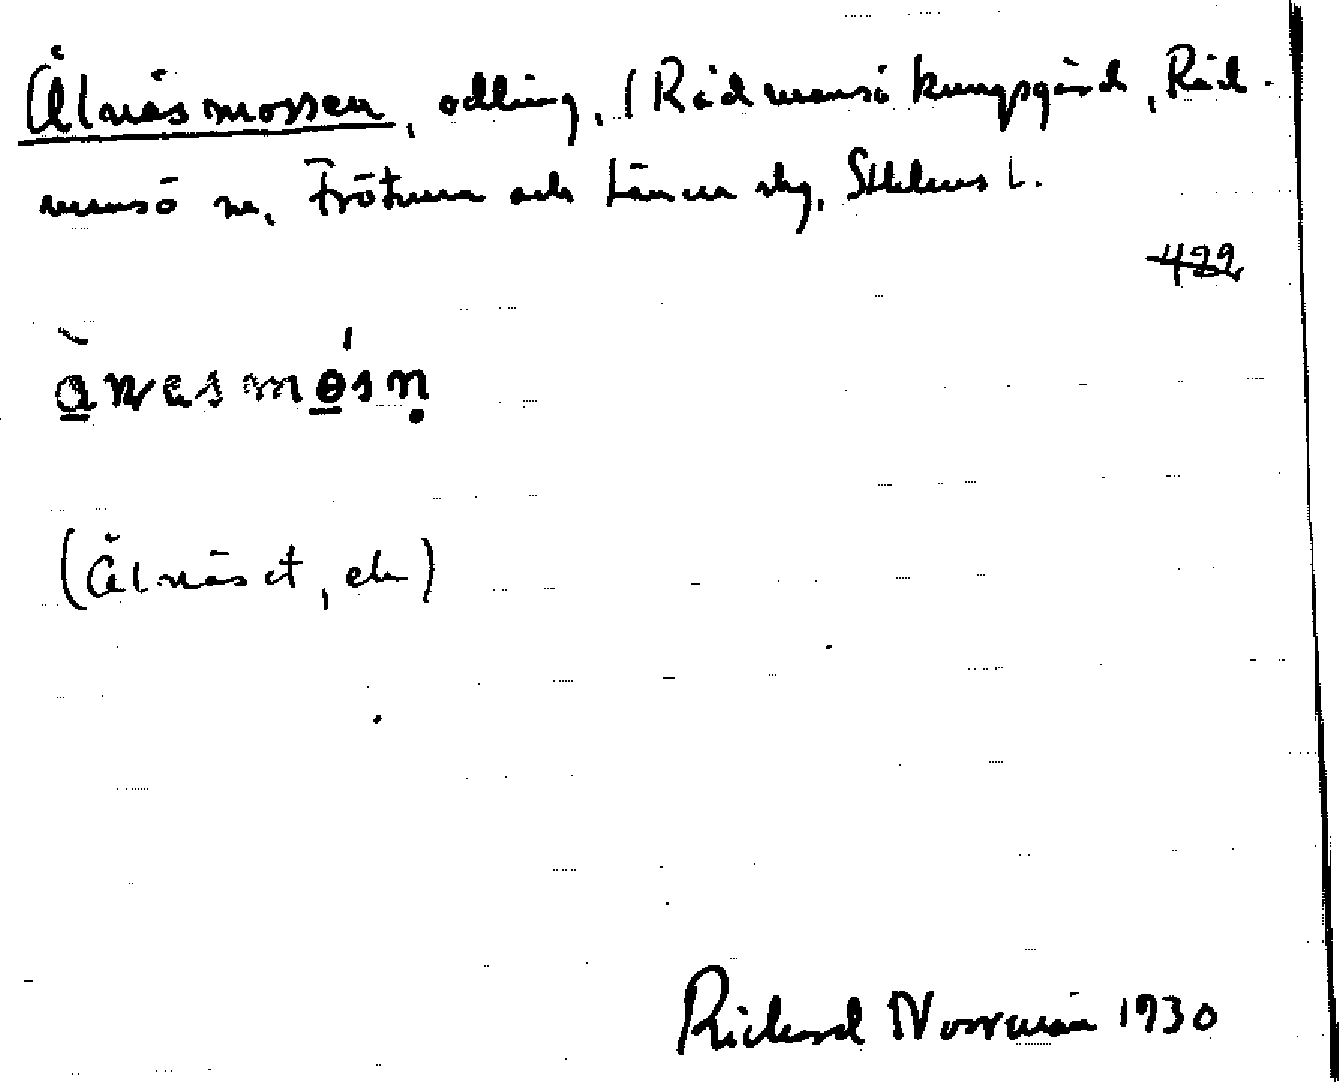 Ålnäsmossen, odling, i Rådmansö kungsgård, Råd-
mansö sn, Frötuna och Länna skg, Sthlms l.
422
(Ålnäset, eln)
Richard Norrman 1930